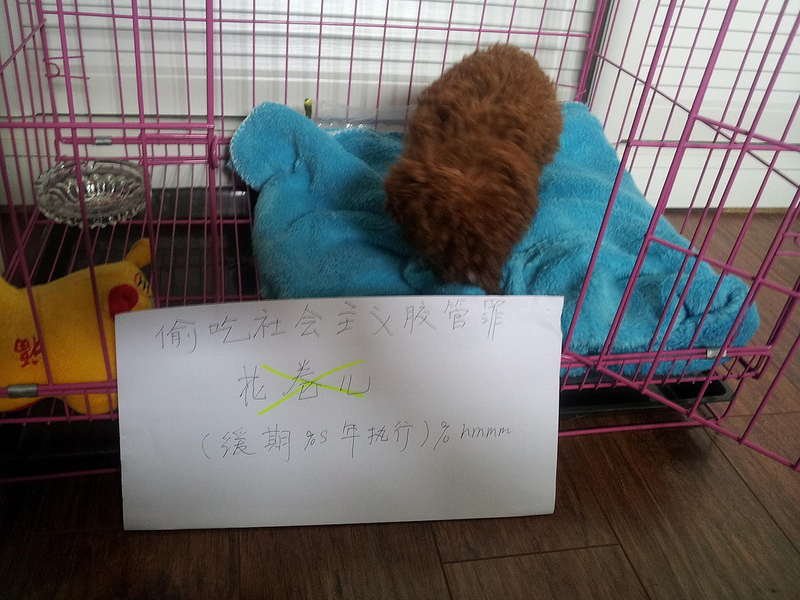 偷吃社会主义胶管罪
花卷儿
(缓期%s年执行)% hmmm